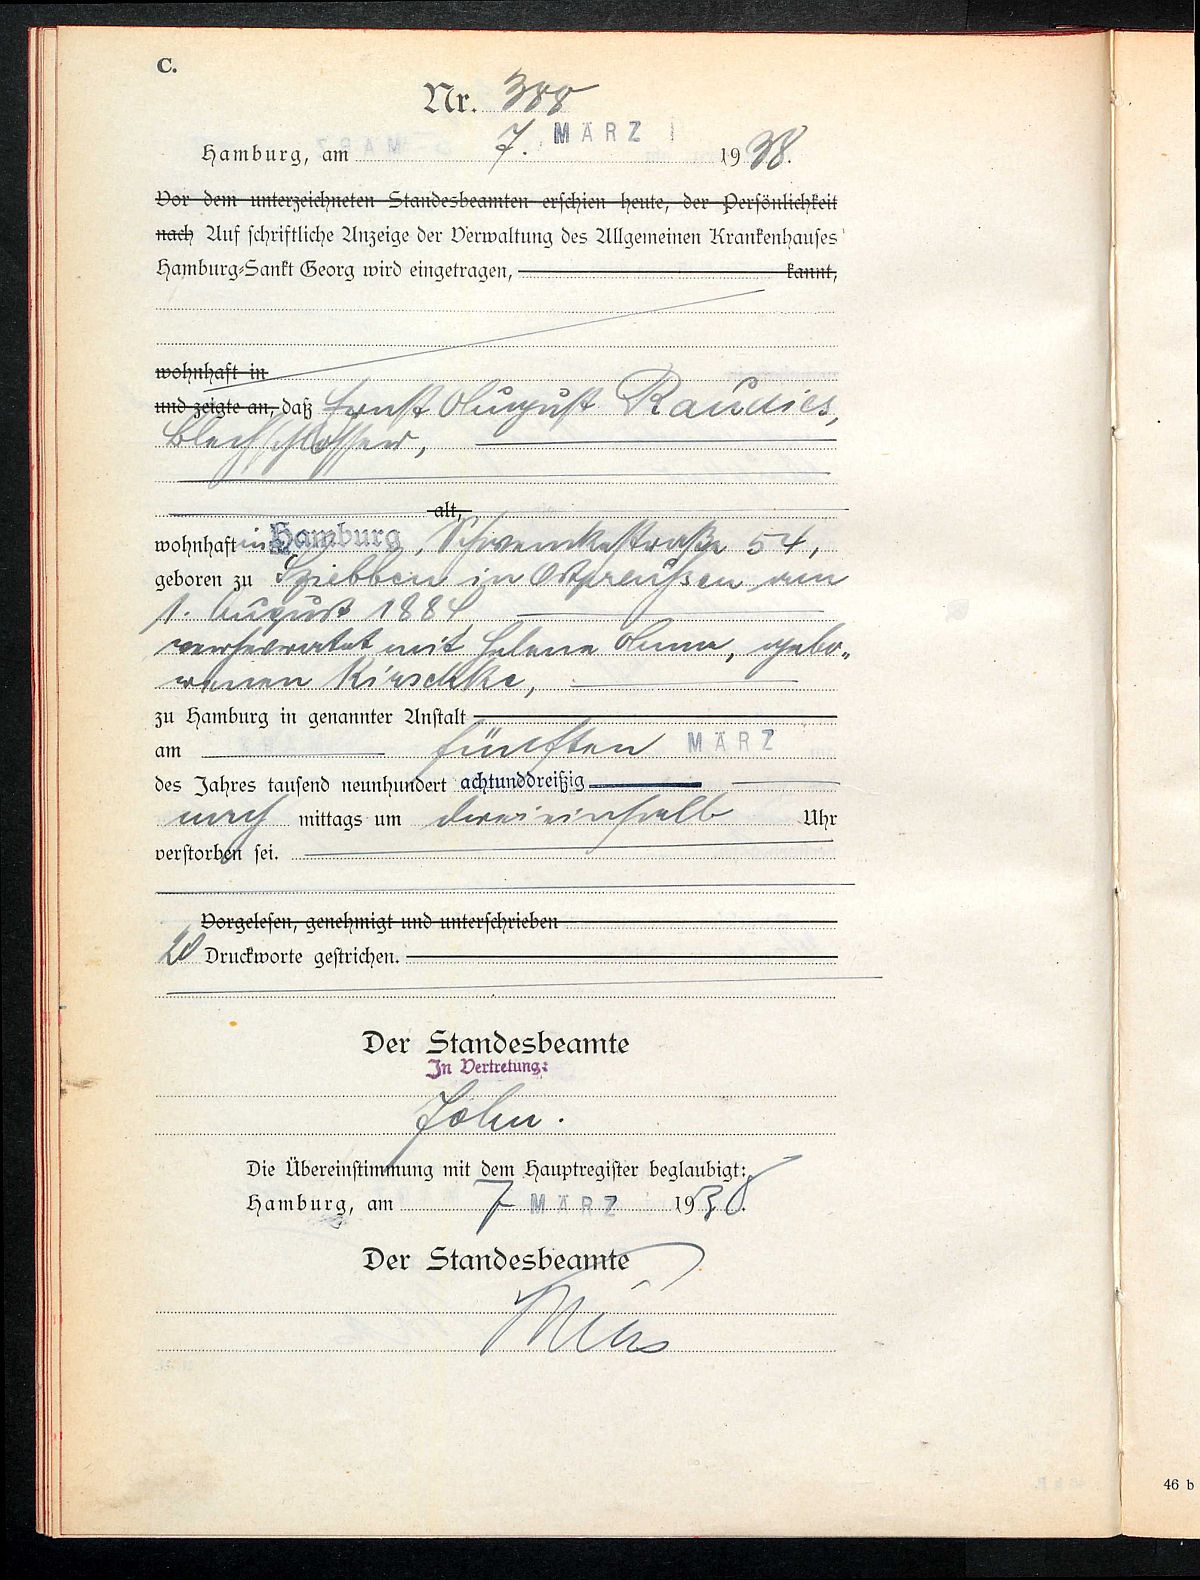 C.
Nr. 388
Hamburg, am 7. MÄRZ 1938.
Vor dem unterzeichneten Standesbeamten erschien heute, der Persönlichkeit
nach Auf schriftliche Anzeige der Verwaltung des Allgemeinen Krankenhauses
Hamburg-Sankt Georg wird eingetragen, kannt,
wohnhaft in
und zeigte an, daß Ernst August Raudies,
Blechschlosser,
alt,
wohnhaft in Hamburg, Schwenckestraße 54,
geboren zu Sziebben in Ostpreußen am
1. August 1884
verheiratet mit Helene Anna, gebo-
renen Kirschke,
zu Hamburg in genannter Anstalt
am fünften MÄRZ
des Jahres tausend neunhundert achtunddreißig
nach mittags um dreieinhalb Uhr
verstorben sei.
Vorgelesen, genehmigt und unterschrieben
20 Druckworte gestrichen.
Der Standesbeamte
In Vertretung:
John.
Die Übereinstimmung mit dem Hauptregister beglaubigt:
Hamburg, am 7. MÄRZ 1938.
Der Standesbeamte
46 b